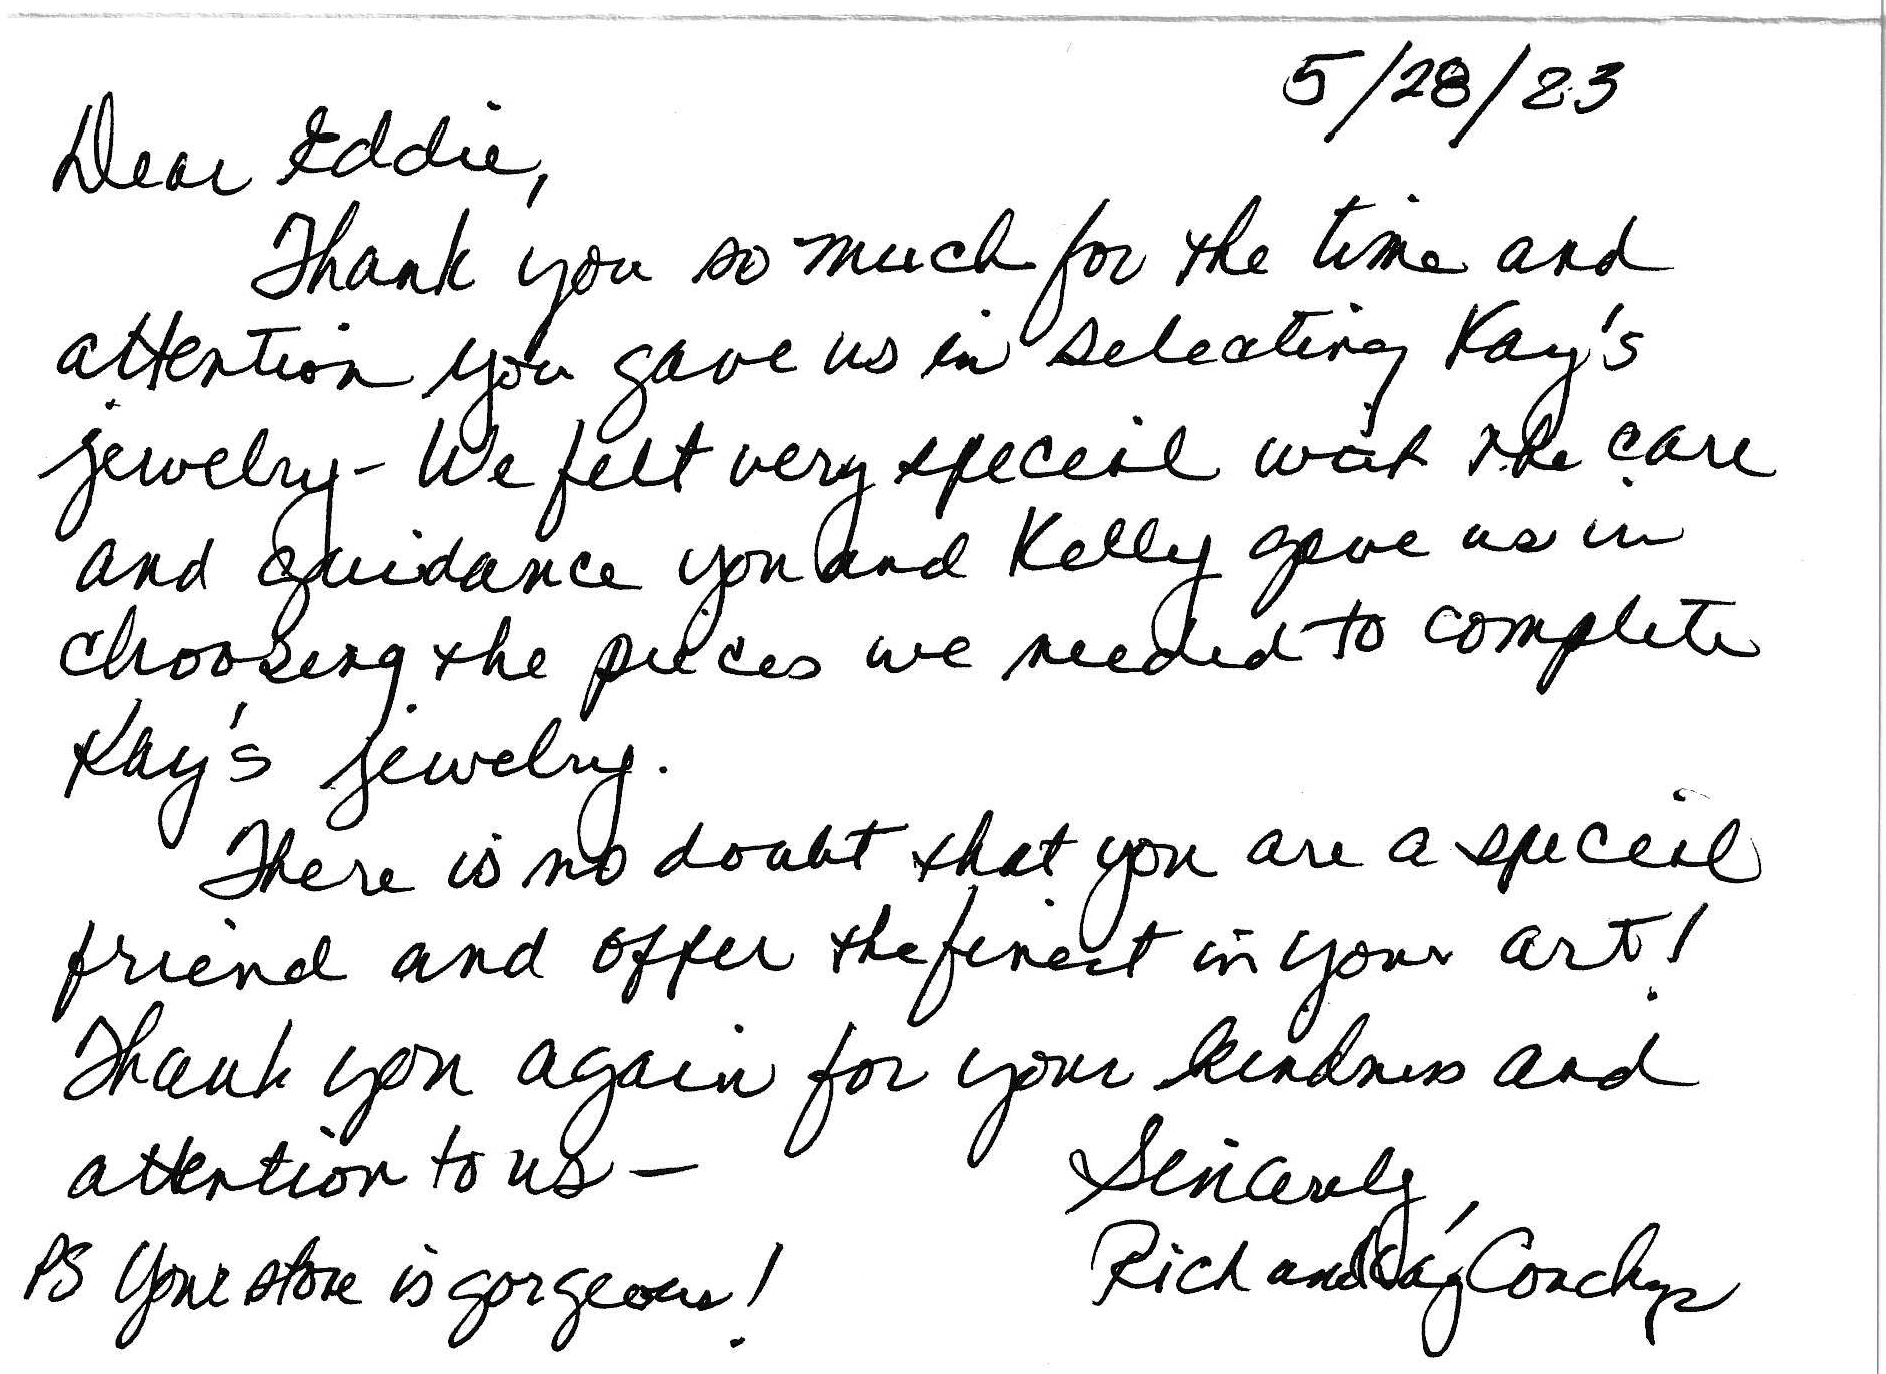 5/28/23
Dear Eddie,
Thank you so much for the time and
attention you gave us in selecting Kay's
jewelry - We felt very special with the care
and guidance you and Kelly gave us in
choosing the pieces we needed to complete
Kay's jewelry.
There is no doubt that you are a special
friend and offer the finest in your art!
Thank you again for your kindness and
attention to us —
Sincerely,
PS Your store is gorgeous!
Rich and Kay